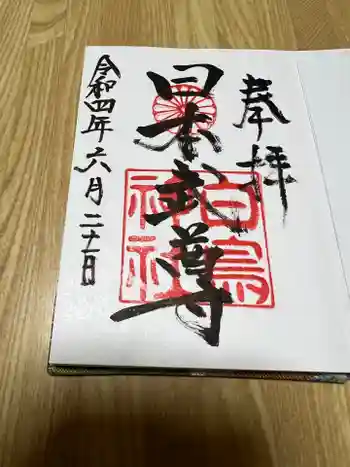 奉拝
日本武尊
白鳥神社
令和四年六月二十一日